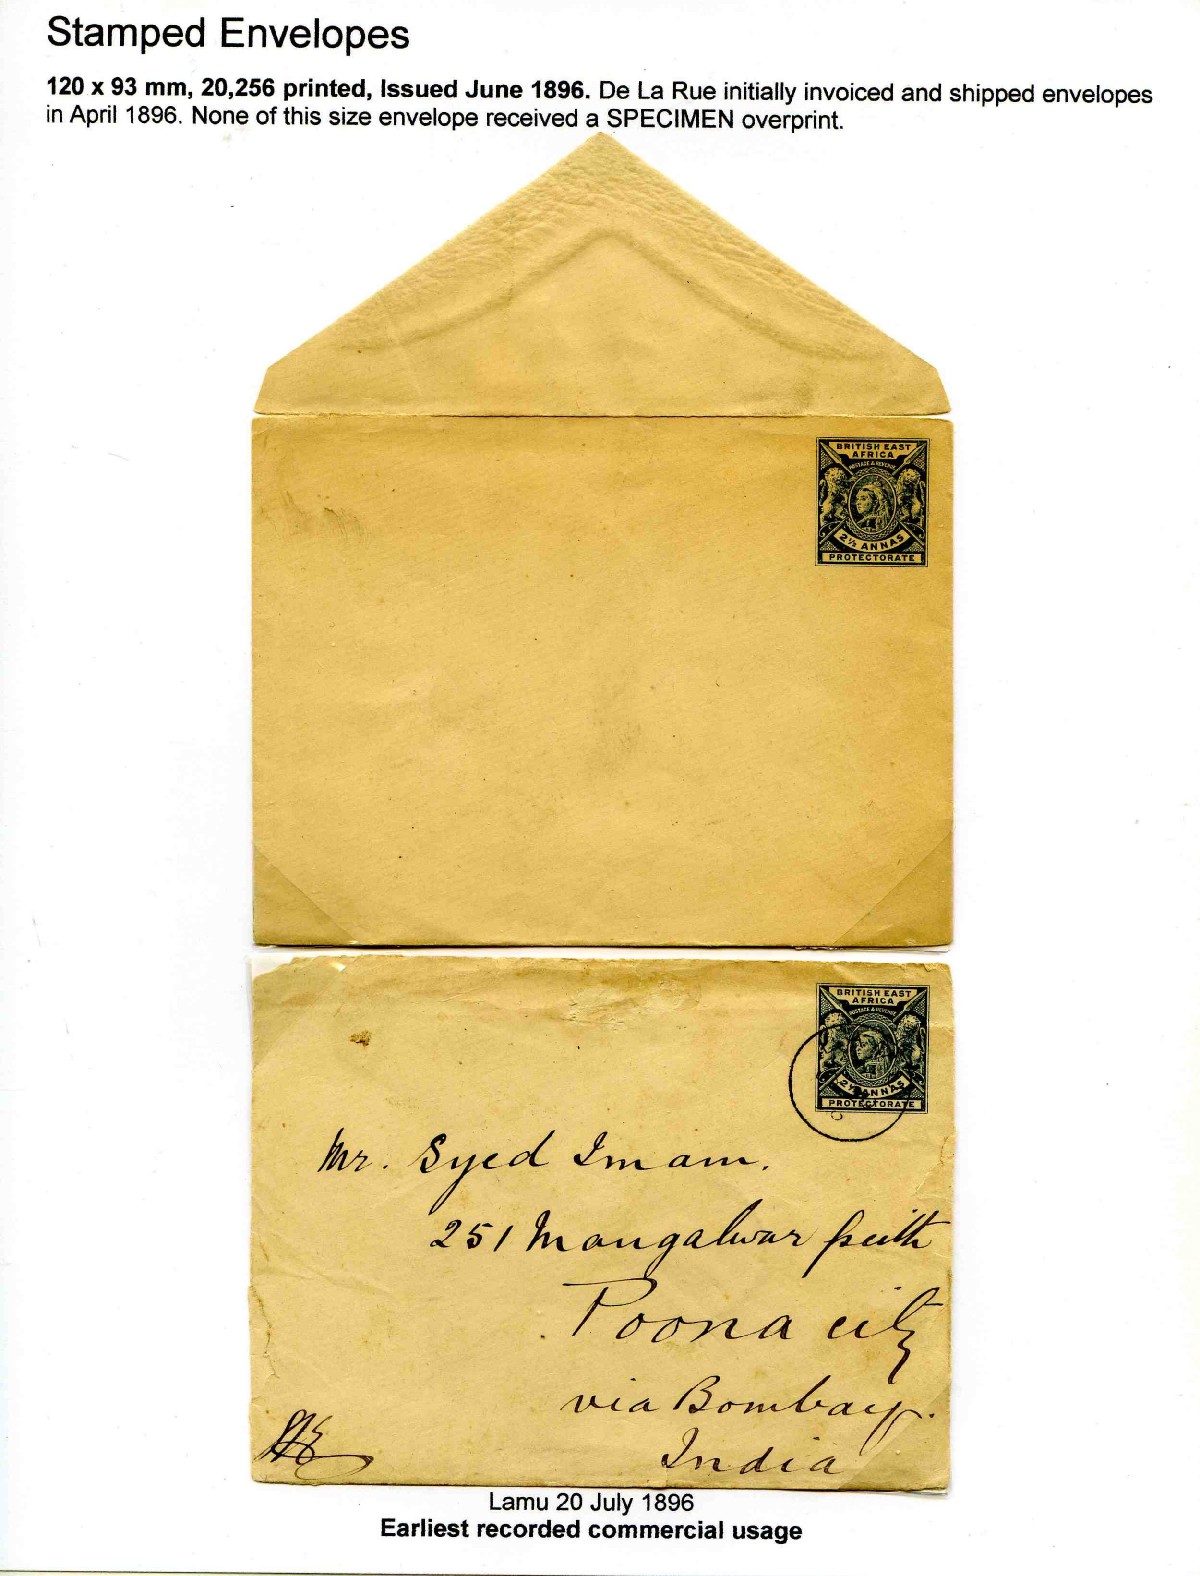 Stamped Envelopes
120 x 93 mm, 20,256 printed, Issued June 1896. De La Rue initially invoiced and shipped envelopes
in April 1896. None of this size envelope received a SPECIMEN overprint.
BRITISH EAST
AFRICA
POSTAGE & REVENUE
2½ ANNAS
PROTECTORATE
BRITISH EAST
AFRICA
POSTAGE & REVENUE
2½ ANNAS
PROTECTORATE
Mr. Syed Imam.
251 Mangalwar peith
Poona city
via Bombay.
India
Lamu 20 July 1896
Earliest recorded commercial usage